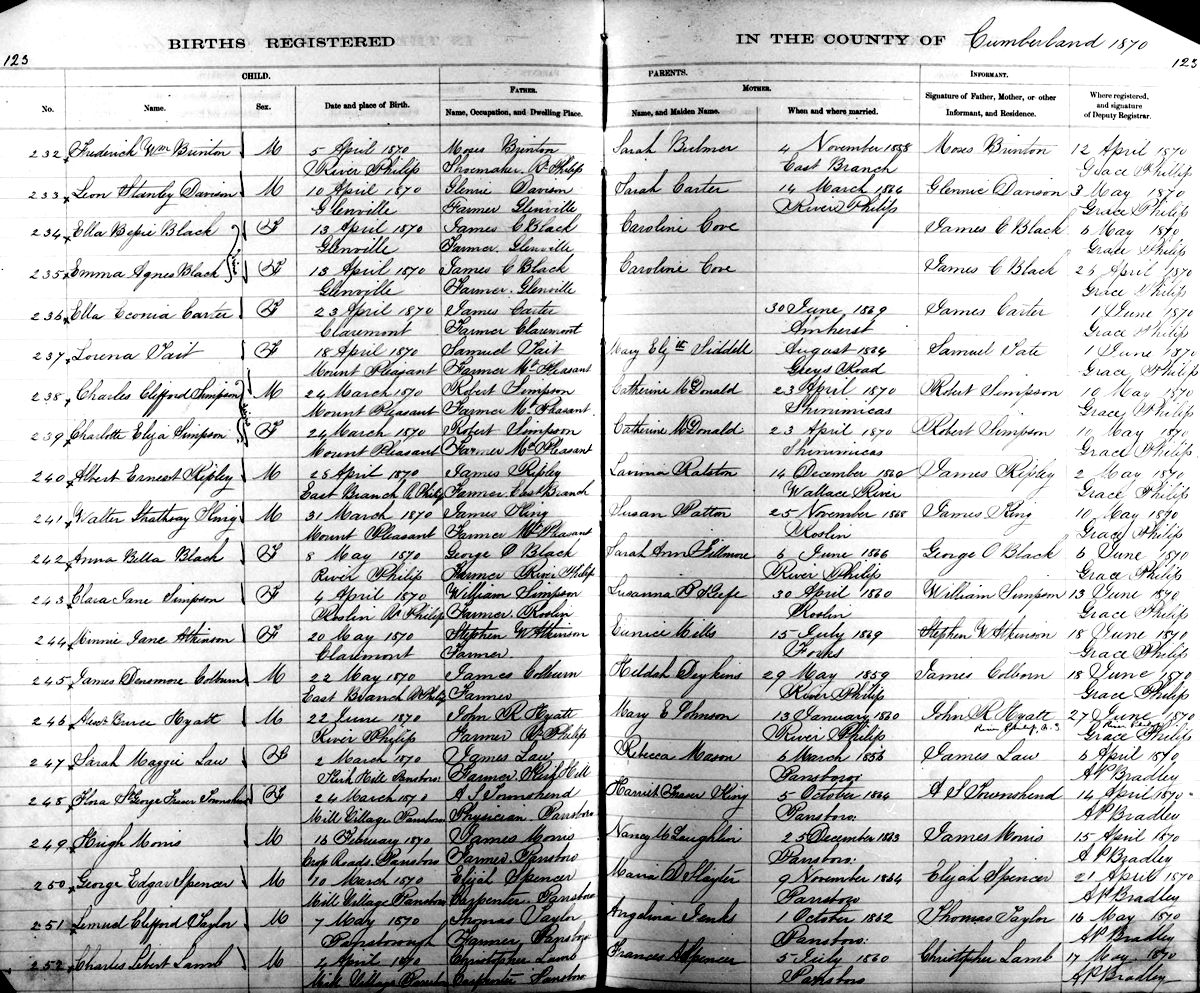 123
BIRTHS REGISTERED IN THE COUNTY OF Cumberland 1870
123
CHILD. PARENTS. INFORMANT.
FATHER. MOTHER.
No. Name. Sex. Date and place of Birth. Name, Occupation, and Dwelling Place. Name, and Maiden Name. When and where married. Signature of Father, Mother, or other Informant, and Residence. Where registered, and signature of Deputy Registrar.
232 Frederick Wm Brinton M 5 April 1870 Moses Brinton Sarah Bulmer 4 November 1858 Moses Brinton 12 April 1870
River Philip Shoemaker R. Philip East Branch Grace Philip
233 Leon Stanley Davison M 10 April 1870 Glennie Davison Sarah Carter 14 March 1864 Glennie Davison 3 May 1870
Glenville Farmer Glenville River Philip Grace Philip
234 Ella Bessie Black F 13 April 1870 James C Black Caroline Cove James C Black 6 May 1870
Glenville Farmer. Glenville Grace Philip
235 Emma Agnes Black F 13 April 1870 James C Black Caroline Cove James C Black 25 April 1870
Glenville Farmer. Glenville Grace Philip
236 Ella Econia Carter F 23 April 1870 James Carter 30 June 1869 James Carter 1 June 1870
Claremont Farmer Claremont Amherst Grace Philip
237 Lorena Tait F 18 April 1870 Samuel Tait Mary Elizth Siddell August 1864 Samuel Tate 1 June 1870
Mount Pleasant Farmer Mt Pleasant Greys Road Grace Philip
238 Charles Clifford Simpson M 24 March 1870 Robert Simpson Catherine McDonald 23 April 1870 Robert Simpson 10 May 1870
Mount Pleasant Farmer Mt Pleasant Shinimicas Grace Philip
239 Charlotte Eliza Simpson F 24 March 1870 Robert Simpson Catherine McDonald 23 April 1870 Robert Simpson May 1870
Mount Pleasant Farmer Mt Pleasant Shinimicas Grace Philip
240 Albert Ernest Ripley M 25 April 1870 James Ripley Lavinia Ralston 14 December 1860 James Ripley 2 May 1870
East Branch R Philip Farmer East Branch Wallace River Grace Philip
241 Walter King M 31 March 1870 James King Susan Patton 25 November 1868 James King 10 May 1870
Mount Pleasant Farmer Mt Pleasant Roslin Grace Philip
242 Anna Bella Black F 8 May 1870 George O Black Sarah Ann Fillmore 6 June 1866 George O Black 6 June 1870
River Philip Farmer River Philip River Philip Grace Philip
243 Clara Jane Simpson F 4 April 1870 William Simpson Susanna O'Keefe 30 April 1860 William Simpson 13 June 1870
Roslin R Philip Farmer. Roslin Roslin Grace Philip
244 Minnie Jane Atkinson F 20 May 1870 Stephen W Atkinson Eunice Mills 15 July 1869 Stephen W Atkinson 18 June 1870
Claremont Farmer. Forks Grace Philip
245 James Densmore Colburn M 22 May 1870 James Colburn Hildah Deykins 29 May 1859 James Colborn 18 June 1870
East Branch R Philip Farmer River Philip Grace Philip
246 Alexr Bruce Hyatt M 22 June 1870 John R Hyatt Mary E Johnson 13 January 1860 John R Hyatt 27 June 1870
River Philip Farmer R. Philip River Philip River Philip, N.S River Philip Grace Philip
247 Sarah Maggie Law F 2 March 1870 James Law Rebecca Mason 6 March 1856 James Law 6 April 1870
Kirk Hill Parrsboro Farmer Kirk Hill Parrsboro A P Bradley
248 Flora St George Fraser Townshend F 24 March 1870 A S Townshend Harriet Fraser King 5 October 1864 A S Townshend 14 April 1870
Mill Village Parrsboro Physician. Parrsboro Parrsboro: A P Bradley
249 Hugh Morris M 16 February 1870 James Morris Nancy McLaughlin 25 December 1863 James Morris 15 April 1870
Cross Roads Parrsboro Farmer. Parrsboro Parrsboro: A P Bradley
250 George Edgar Spencer M 10 March 1870 Elijah Spencer Maria D Slayter 9 November 1864 Elijah Spencer 21 April 1870
Mill Village Parrsboro Carpenter. Parrsboro Parrsboro A P Bradley
251 Lemuel Clifford Taylor M 7 May 1870 Thomas Taylor Angelina Jenks 1 October 1862 Thomas Taylor 16 May 1870
Parrsborough Farmer, Parrsboro: Parrsboro: A P Bradley
252 Charles Libert Lamb M 4 April 1870 Christopher Lamb Frances A Spencer 5 July 1860 Christopher Lamb 17 May 1870
Mill Village Parrsboro Carpenter Parrsboro Parrsboro A P Bradley